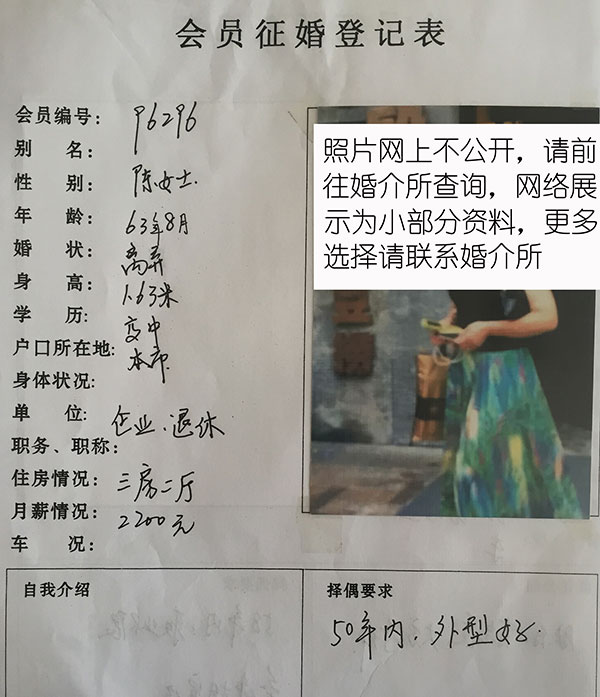 会员征婚登记表
会员编号: 96296
别 名: 陈女士.
性 别:
年 龄: 63年8月
婚 状: 离异
身 高: 1.63米
学 历: 高中
户口所在地: 本市
身体状况:
单 位: 企业.退休
职务、职称:
住房情况: 三房二厅
月薪情况: 2200元
车 况:
照片网上不公开，请前
往婚介所查询，网络展
示为小部分资料，更多
选择请联系婚介所
自我介绍
择偶要求
50年内.外型好.